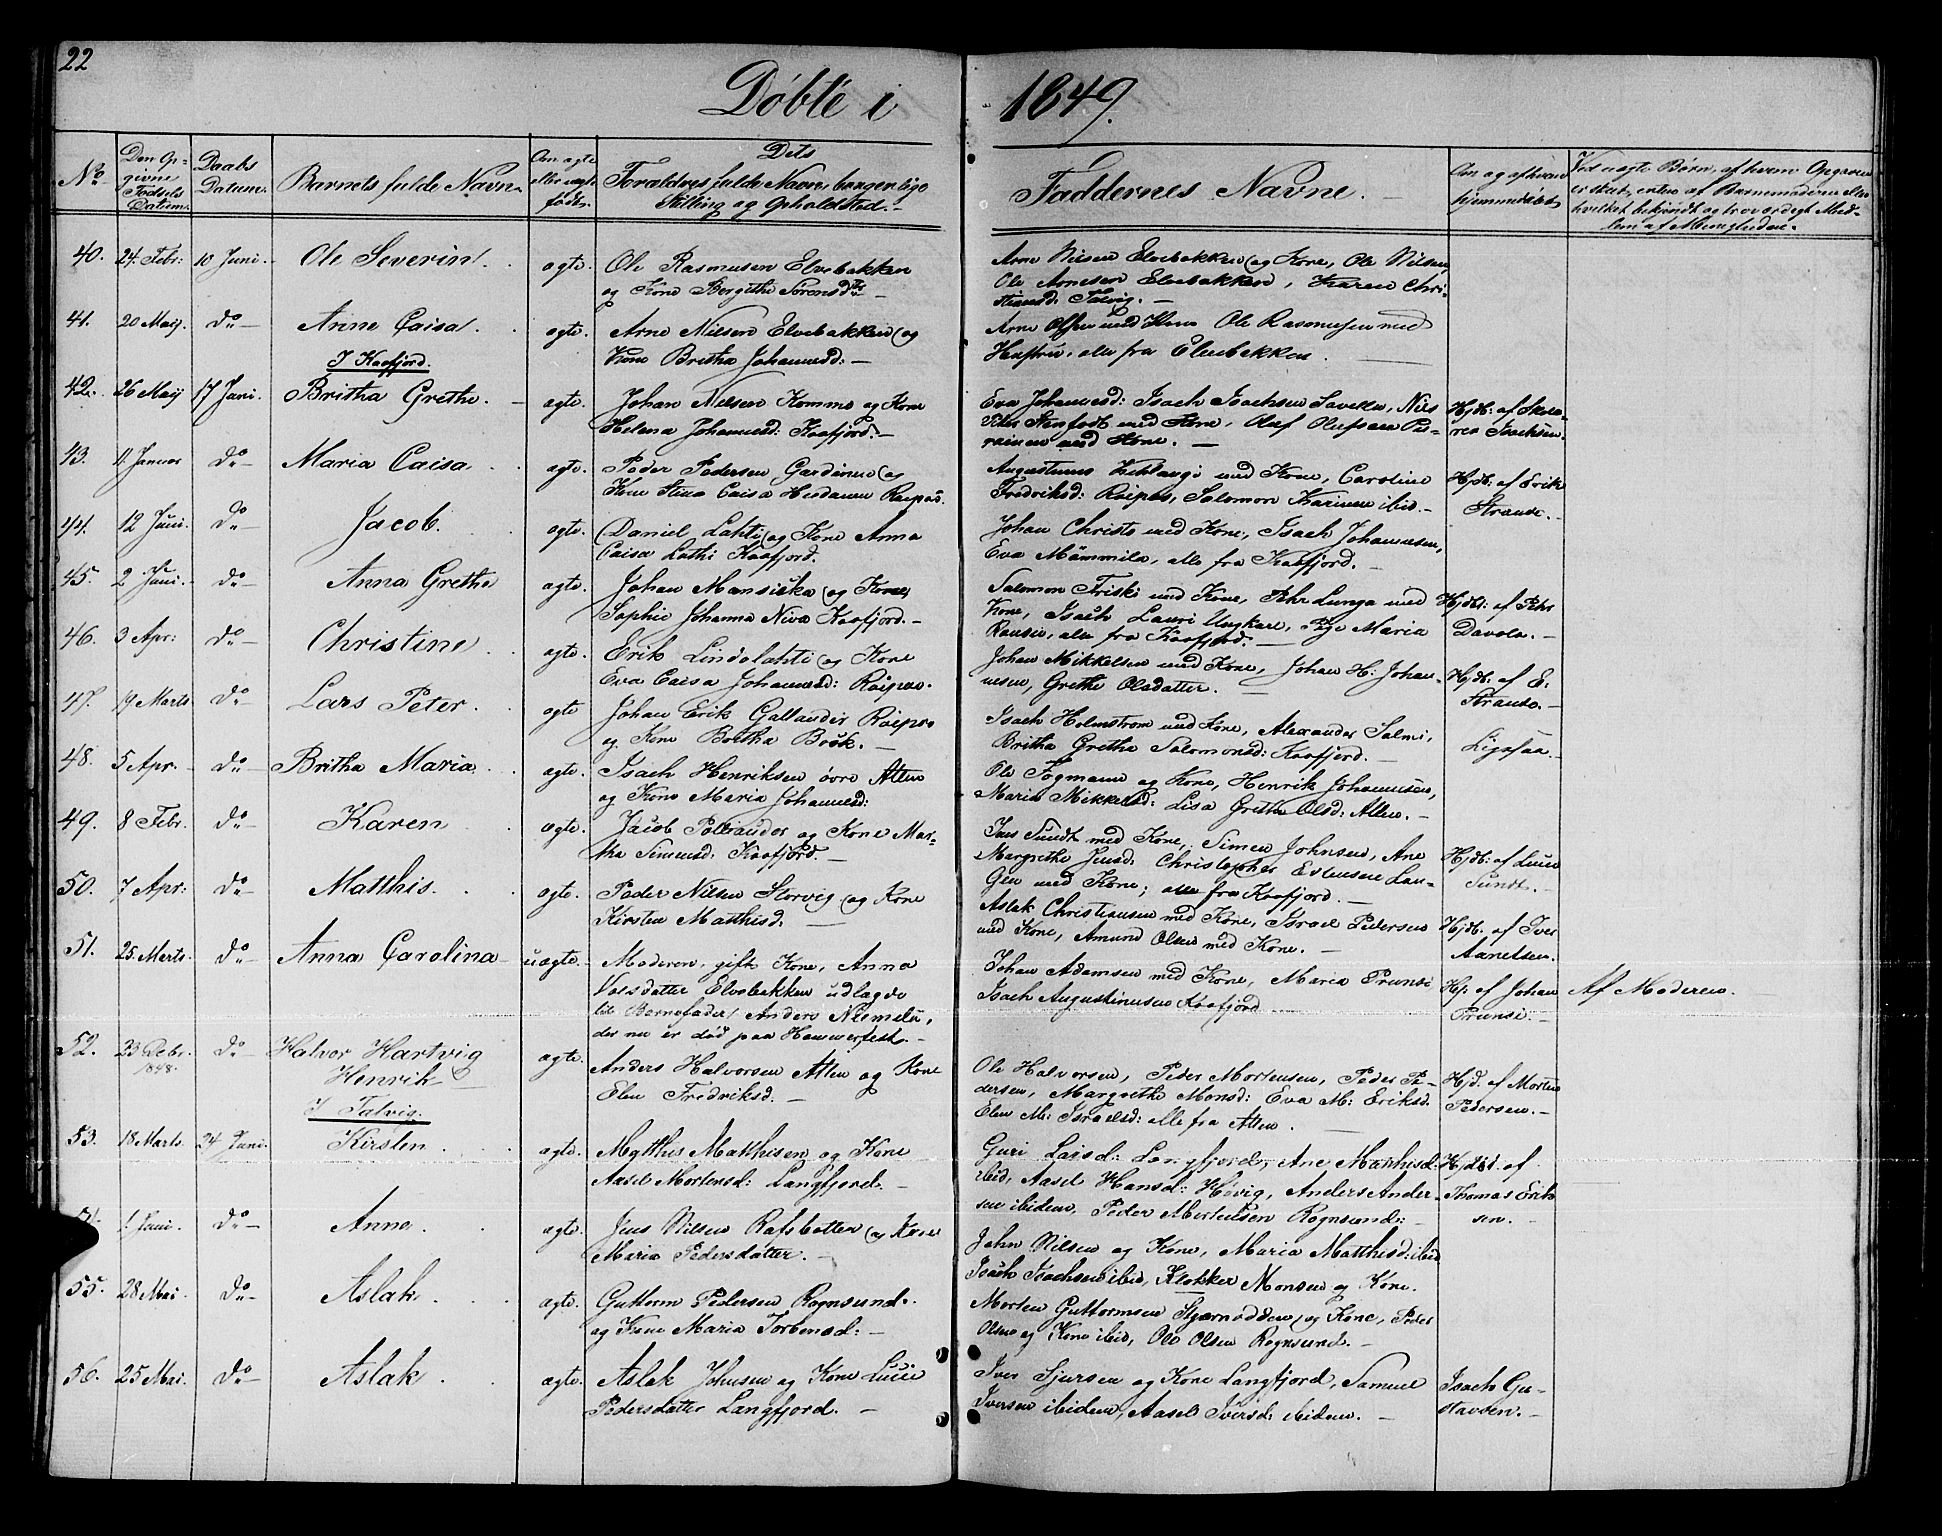 22
Döbte i 1849.
No
Den Op-
givne
Fødsels
Datum.
Daabs
Datum.
Barnets fulde Navn.
Om ægte
eller uægte
født.
Dets
Forældres fulde Navne, borgerlige
Stilling og Opholdsted.
Faddernes Navne.
Om og af hvem
hjemmedøbt
Ved uægte Børn, af hvem Opgaven
er skeet, enten af Barnemoderen eller
hvilket bekjendt og troværdigt Med-
lem af Menigheden.
40. 24. Febr: 10 Juni. Ole Severin. ægte.
Ole Rasmusen Elvebakken
og Kone Bergithe Sørensdtr
Arne Nilsen Elvebakken og Kone, Ole Nilsen,
Ole Arnesen Elvebakken, Karen Chri-
stiansd: Talvig.
41. 20 Maij. do Anne Caisa. ægte.
Arne Nielsen Elvebakken og
Kone Britha Johannesd:
Arne Olsen med Kone Ole Rasmusen med
Hustru, alle fra Elvebakken.
I Kaafjord.
42. 26 Maij 17 Juni. Britha Grethe. ægte.
Johan Nielsen Kommo og Kone
Helena Johannesd: Kaafjord.
Eva Johannesd: Isach Isachsen Lavella, Nils
Peder Stenfodt med Kone, Oluf Olufsen Pu-
rainen med Kone.
Hjdb: af
Isachsen.
43. 11 Januar do Maria Caisa. ægte.
Peder Pedersen Gardinen og
Kone Stina Caisa Raipas.
Augustinus med Kone, Caroline
Fredriksd: Raipas, Salomon Karinen ibid.
Hjdb. af Erik
Strande.
44. 12 Juni. do Jacob. ægte.
Daniel Lahti og Kone Anna
Caisa Lathi Kaafjord.
Johan Christo med Kone, Isach Johannesen,
Eva Mämmilä, alle fra Kaafjord.
45. 2 Juni. do Anna Grethe ægte.
Johan Mansikka og Kone
Sophie Johanna Niva Kaafjord.
Salomon Friski med Kone, Pehr Lunga med
Kone, Isach Lauri Ungkarl, Pige Maria
Rausu, alle fra Kaafjord.
Hjdb: af Pehr
Davola.
46. 3 Apr: do Christine ægte.
Erik Lindolahti og Kone
Eva Caisa Johannesd: Raipas.
Johan Mikkelsen med Kone, Johan H: Johan-
nesen, Grethe Olsdatter.
Hjdb. af E.
Strande.
47. 19 Marts do Lars Peter. ægte
Johan Erik Gallander Raipas
og Kone Bretha Bosk.
Isach Holmstrøm med Kone, Alexander Salmi,
Britha Gretha Salomonsd: Kaafjord.
Ligesaa.
48. 5 Apr. do Britha Maria. ægte.
Isach Henriksen övre Alten
og Kone Maria Johannesd:
Ole Togmann og Kone, Henrik Johannesen,
Maria Mikkelsd: Lisa Grethe Olsd: Alten.
49. 8 Febr. do Karen ægte.
Jacob Pollander og Kone Mar-
tha Simensd: Kaafjord.
Jens Sundt med Kone, Simen Johnsen, Ane
Margrethe Jensd: Christopher Estensen Lan-
gen med Kone; alle fra Kaafjord.
Hjdb: af
Sundt.
50. 7 Apr: do Matthis. ægte.
Peder Nilsen Storvig og Kone
Kirsten Matthisd.
Aslak Christiansen med Kone, Israel Pedersen
med Kone, Amund Olsen med Kone.
Hjdb. af Iver
Aanetsen.
51. 25 Marts do Anna Carolina uægte.
Moderen, gift Kone, Anna
Larsdatter Elvebakken udlagde
til Barnefader Anders Niemelä,
der nu er död paa Hammerfest.
Johan Adamsen med Kone, Maria Prunsi
Isach Augustinusen Kaafjord
Hj: af Johan
Prunsi.
Af Moderen.
52. 23 Debr. 1848. do Halvor Hartvig
Henrik ægte.
Anders Halvorsen Alten og Kone
Elen Fredriksd.
Ole Halvorsen, Peder Mortensen, Peder Pe-
dersen, Margrethe Monsd: Eva M: Eriksd.
Elen M: Israelsd: alle fra Alten.
Hjd. af Morten
Pedersen.
I Talvig.
53. 18 Marts. 24 Juni. Kirsten ægte.
Matthis Matthisen og Kone
Aasel Mortensd: Langfjord.
Guri Larsd: Langfjord, Ane Matthisd:
ibid, Aasel Hansd: Høvig, Anders Ander-
sen ibidem, Peder Mortensen Rognsund:
Hjdbd. af
Thomas Erik
sen.
54. 1. Juni. do Anne. ægte.
Jens Nilsen Rafsbotten og Kone
Maria Pedersdatter.
John Nilsen og Kone, Maria Matthisd: ibid
Isach Isachsen ibid, Klokker Monsen og Kone.
55. 28 Mai. do Aslak ægte.
Guttorm Pedersen Rognsund.
og Kone Maria Torbensd:
Morten Guttormsen Stjernodden og Kone, Peder
Olsen og Kone ibid, Ole Olsen Rognsund.
56. 25 Mai. do Aslak ægte.
Aslak Johnsen og Kone Lucie
Pedersdatter Langfjord.
Iver Sjursen og Kone Langfjord, Samuel
Iversen ibidem, Aasel Iversd: ibidem.
Isach Gu-
stavsen.